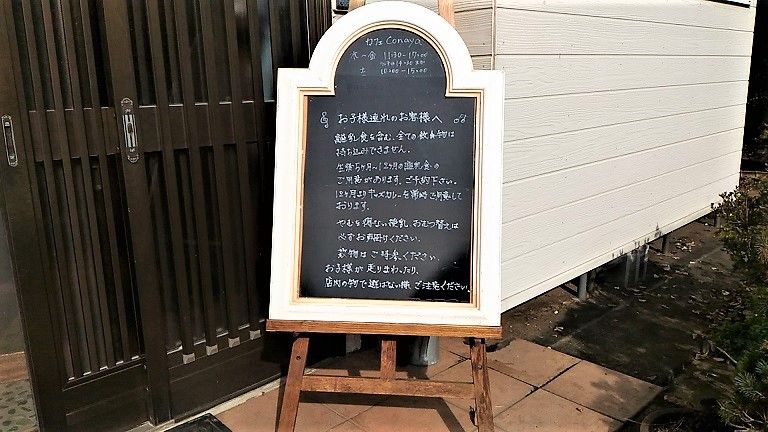 カフェ Conaya
水～金 11:30-17:00
土 10:00-15:00
お子様連れのお客様へ
離乳食を含む、全ての飲食物は
持ち込みできません。
生後5ヶ月～18ヶ月の離乳食の
ご用意があります。ご予約下さい。
18ヶ月よりキッズカレーを常時ご用意して
おります。
やむを得ない授乳、おむつ替えは
必ずお声掛けください。
敷物はご持参ください。
お子様が走りまわったり、
店内の物で遊ばない様、ご注意ください。